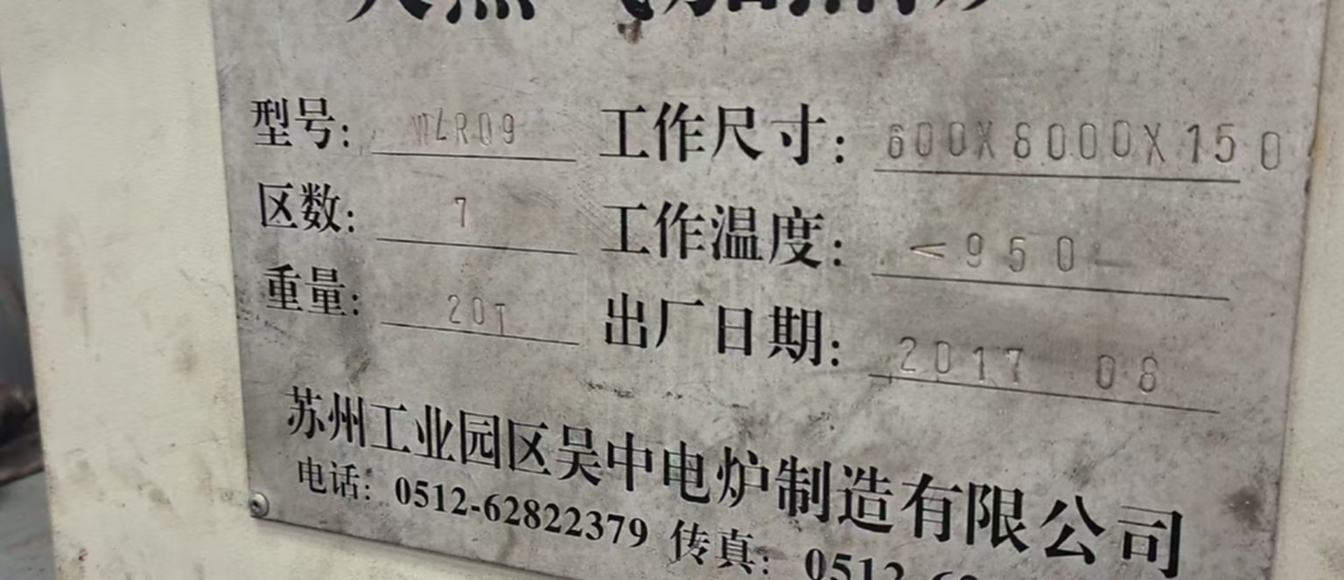 型号: WLR09 工作尺寸: 600X8000X150
区数: 7 工作温度: <950
重量: 20T 出厂日期: 2017 08
苏州工业园区吴中电炉制造有限公司
电话: 0512-62822379 传真: 0512-62